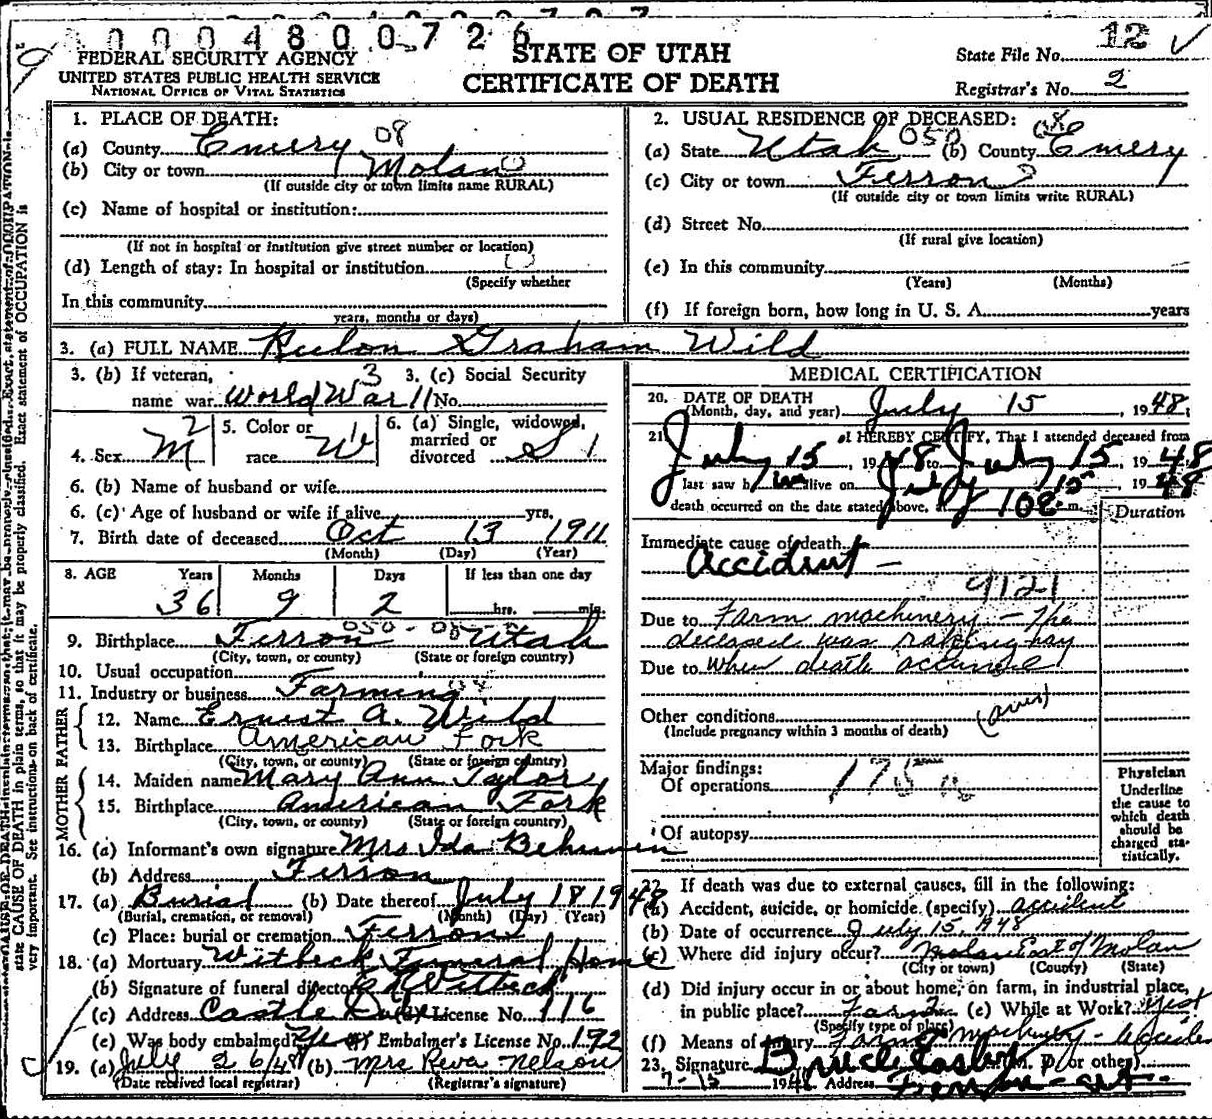 0004800726
FEDERAL SECURITY AGENCY
UNITED STATES PUBLIC HEALTH SERVICE
NATIONAL OFFICE OF VITAL STATISTICS
STATE OF UTAH
CERTIFICATE OF DEATH
State File No. 12
Registrar's No. 2
1. PLACE OF DEATH:
08
(a) County Emery
(b) City or town Molan
(If outside city or town limits name RURAL)
(c) Name of hospital or institution:
(If not in hospital or institution give street number or location)
(d) Length of stay: In hospital or institution
(Specify whether
In this community
years, months or days)
2. USUAL RESIDENCE OF DECEASED:
(a) State Utah 050 (b) County Emery
(c) City or town Ferron
(If outside city or town limits write RURAL)
(d) Street No.
(If rural give location)
(e) In this community
(Years) (Months)
(f) If foreign born, how long in U. S. A. years
3. (a) FULL NAME Rulon Graham Wild
3. (b) If veteran, 3
name war World War II
3. (c) Social Security
No.
4. Sex M 2
5. Color or
race W 1
6. (a) Single, widowed,
married or
divorced S 1
6. (b) Name of husband or wife
6. (c) Age of husband or wife if alive yrs.
7. Birth date of deceased Oct 13 1911
(Month) (Day) (Year)
8. AGE Years Months Days If less than one day
36 9 2 hrs. min.
9. Birthplace Ferron Utah
(City, town, or county) (State or foreign country)
10. Usual occupation
11. Industry or business Farming
FATHER
12. Name Ernest A. Wild
13. Birthplace American Fork
(City, town, or county) (State or foreign country)
MOTHER
14. Maiden name Mary Ann Taylor
15. Birthplace American Fork
(City, town, or county) (State or foreign country)
16. (a) Informant's own signature Mrs Ida Behunin
(b) Address Ferron
17. (a) Burial (b) Date thereof July 18 1948
(Burial, cremation, or removal) (Month) (Day) (Year)
(c) Place: burial or cremation Ferron
18. (a) Mortuary Witbeck Funeral Home
(b) Signature of funeral director Witbeck
(c) Address Castle Dale License No. 116
(e) Was body embalmed? Yes Embalmer's License No. 192
19. (a) July 26/48 (b) Mrs Reva Nelson
(Date received local registrar) (Registrar's signature)
MEDICAL CERTIFICATION
20. DATE OF DEATH
(Month, day, and year) July 15, 1948;
21. I HEREBY CERTIFY, That I attended deceased from
July 15, 1948 to July 15 1948
last saw him alive on July 15 1948
death occurred on the date stated above, at m.
Duration
Immediate cause of death
Accident -
9121
Due to Farm machinery - The
deceased was raking hay
Due to When death occurred
Other conditions
(Include pregnancy within 3 months of death)
Major findings:
Of operations
Of autopsy
Physician
Underline
the cause to
which death
should be
charged sta-
tistically.
22. If death was due to external causes, fill in the following:
(a) Accident, suicide, or homicide (specify) accident
(b) Date of occurrence July 15, 1948
(c) Where did injury occur? East of Molan
(City or town) (County) (State)
(d) Did injury occur in or about home, on farm, in industrial place,
in public place? Farm (e) While at Work?
(Specify type of place)
(f) Means of Injury Farm machinery - Acciden
23. Signature Bruce (M. D or other)
7-15 1948 Address Ferron - ut.
state CAUSE OF DEATH in plain terms, so that it may be properly classified. Exact statement of OCCUPATION is
very important. See instructions on back of certificate.